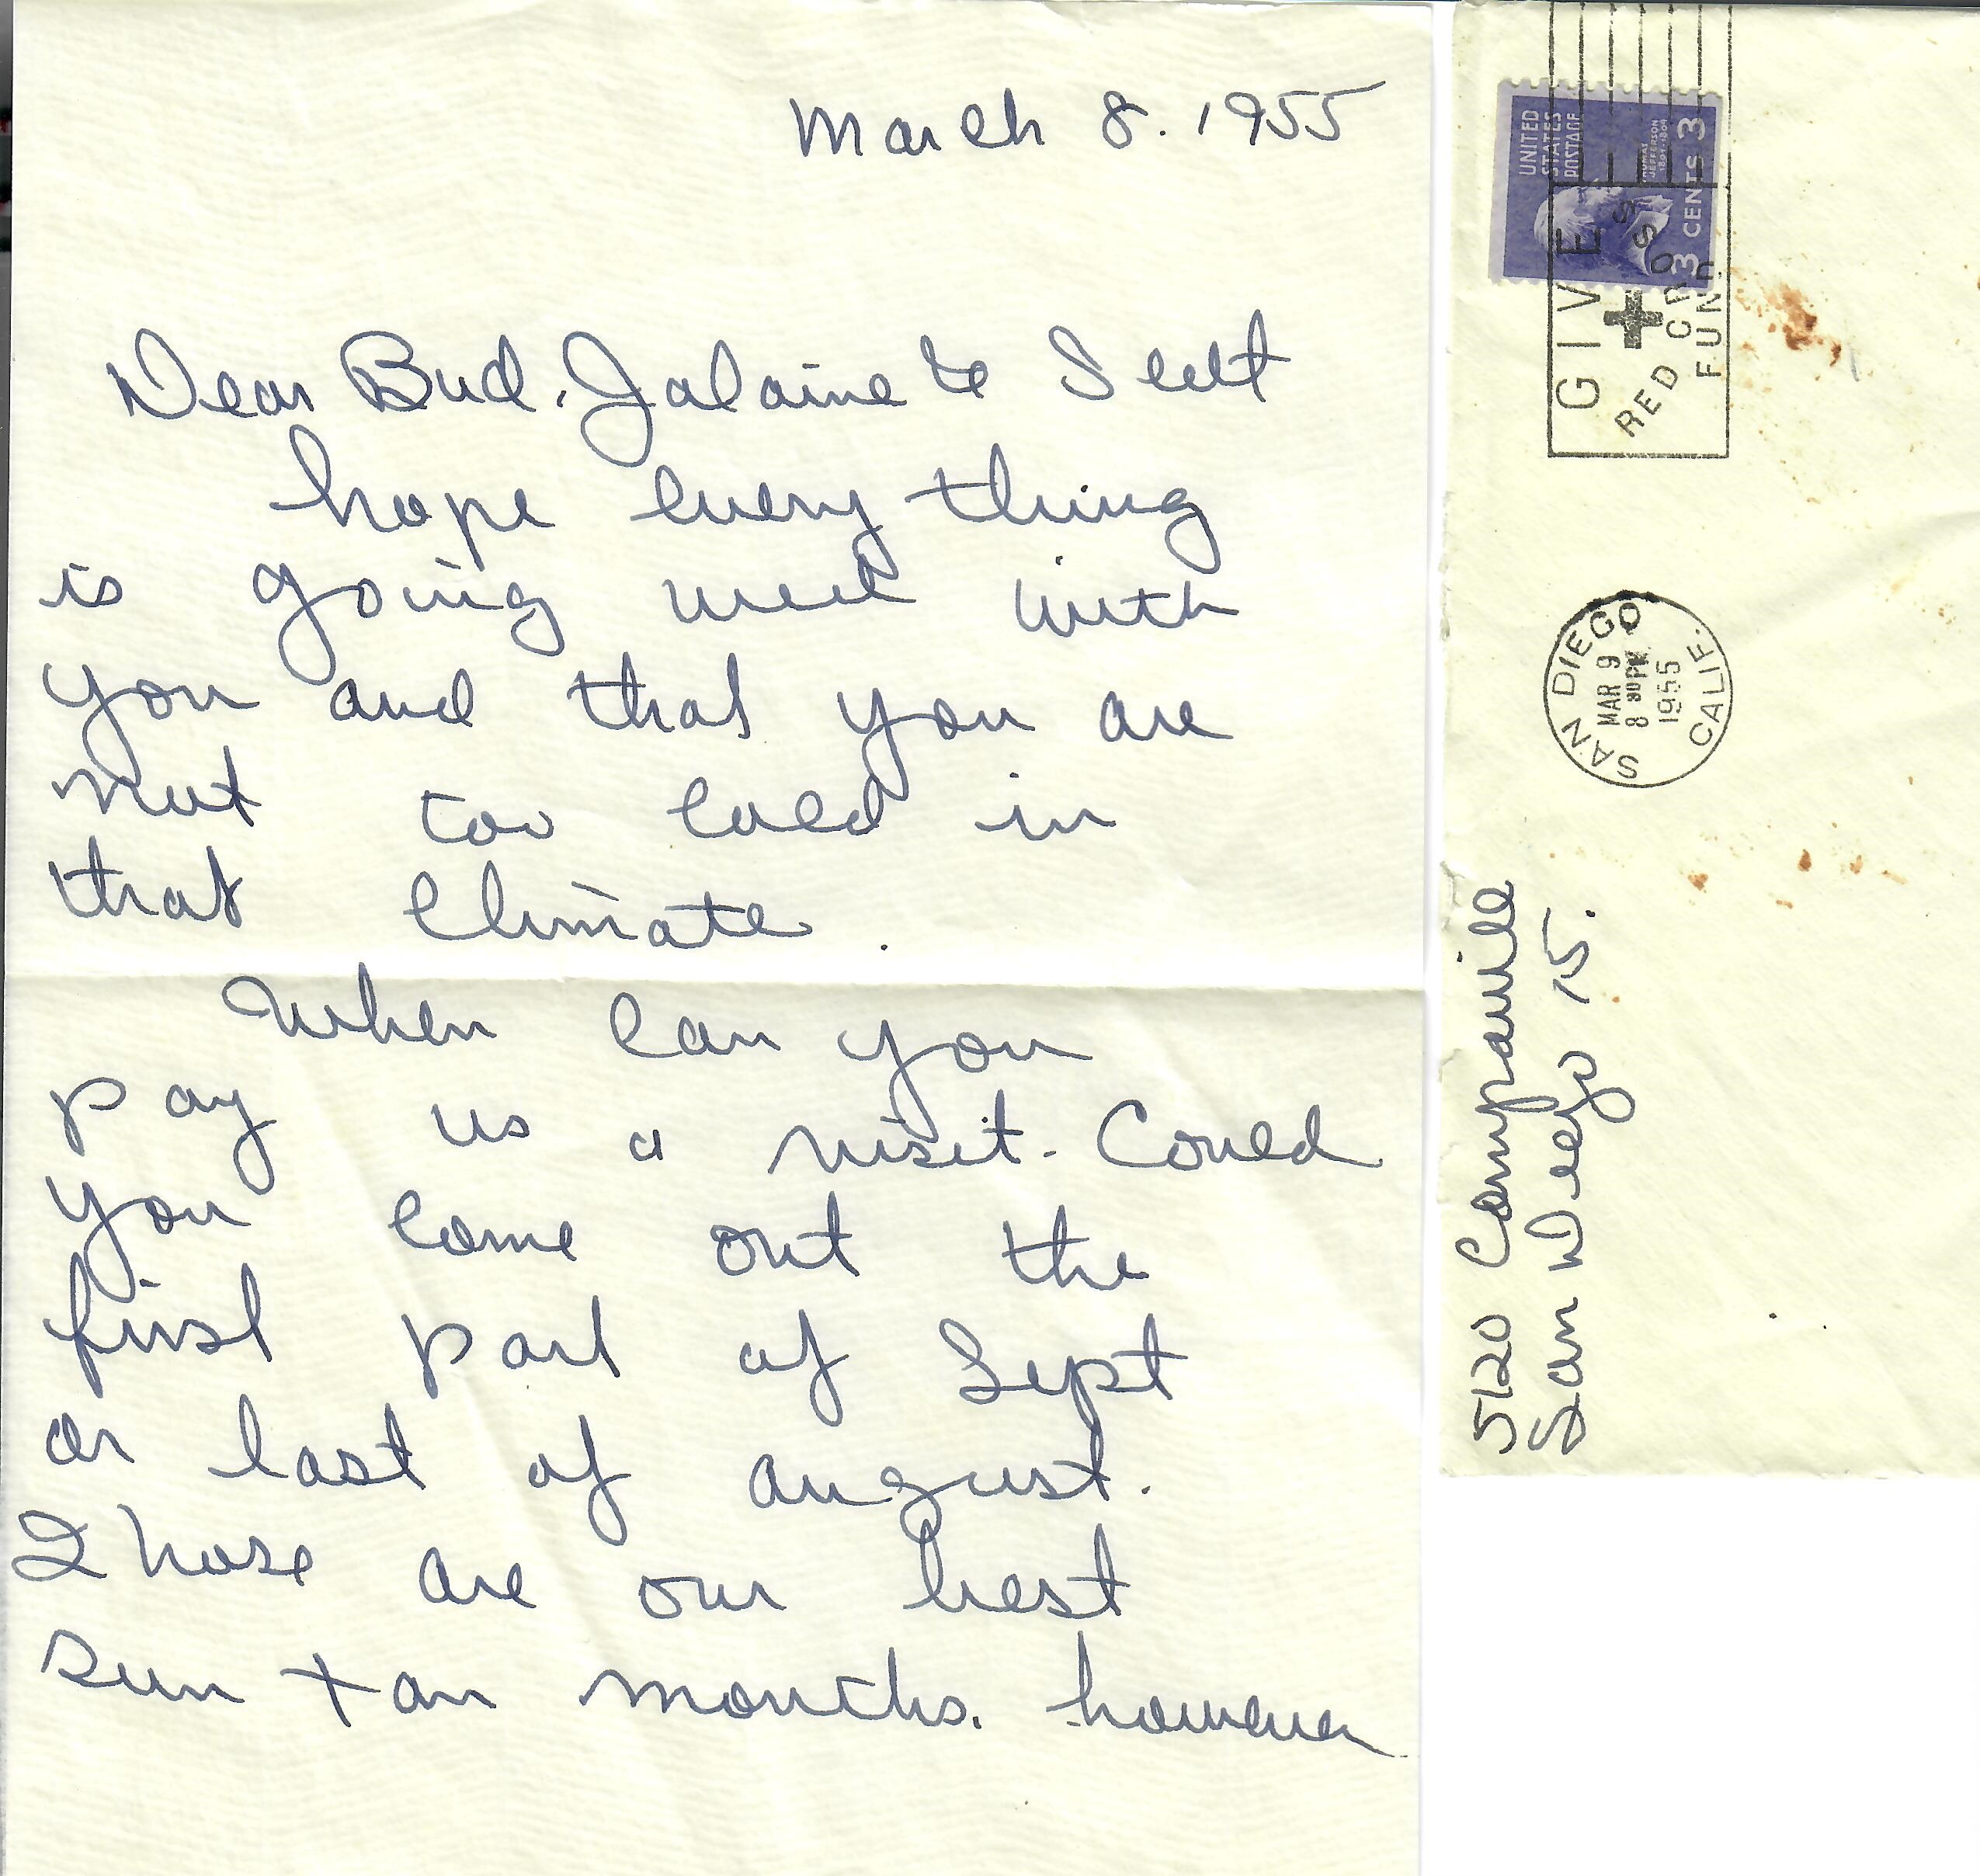 March 8. 1955
Dear Bud, Jalaine &
hope every thing
is going well with
you and that you are
not too cold in
that climate.
When can you
pay us a visit. Could
you come out the
first part of Sept
or last of august.
Those are our best
sun tan months. however
UNITED
STATES
POSTAGE
THOMAS
JEFFERSON
1801-1809
3 CENTS 3
GIVE
RED CROSS
FUND
SAN DIEGO, CALIF.
MAR 9
8 PM
1955
5120 Campanile
San Diego 15.